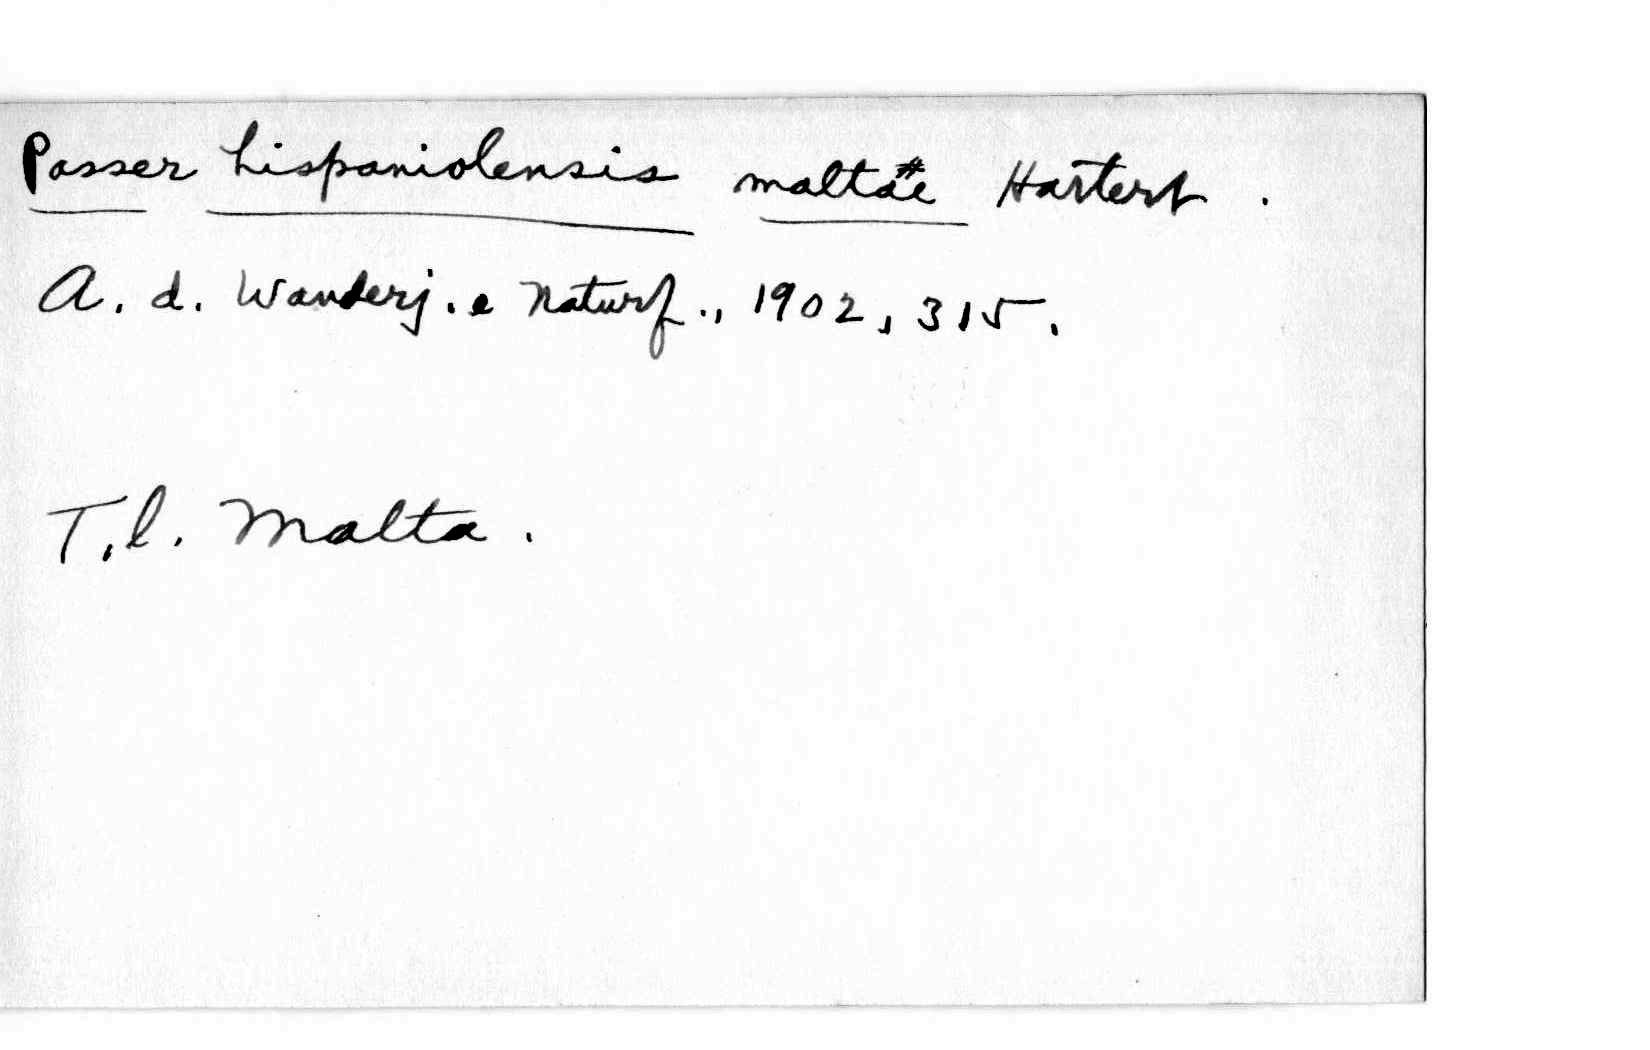 Passer hispaniolensis maltae Hartert.
A. d. Wanderj. e Naturf., 1902, 315.
T.l. Malta.